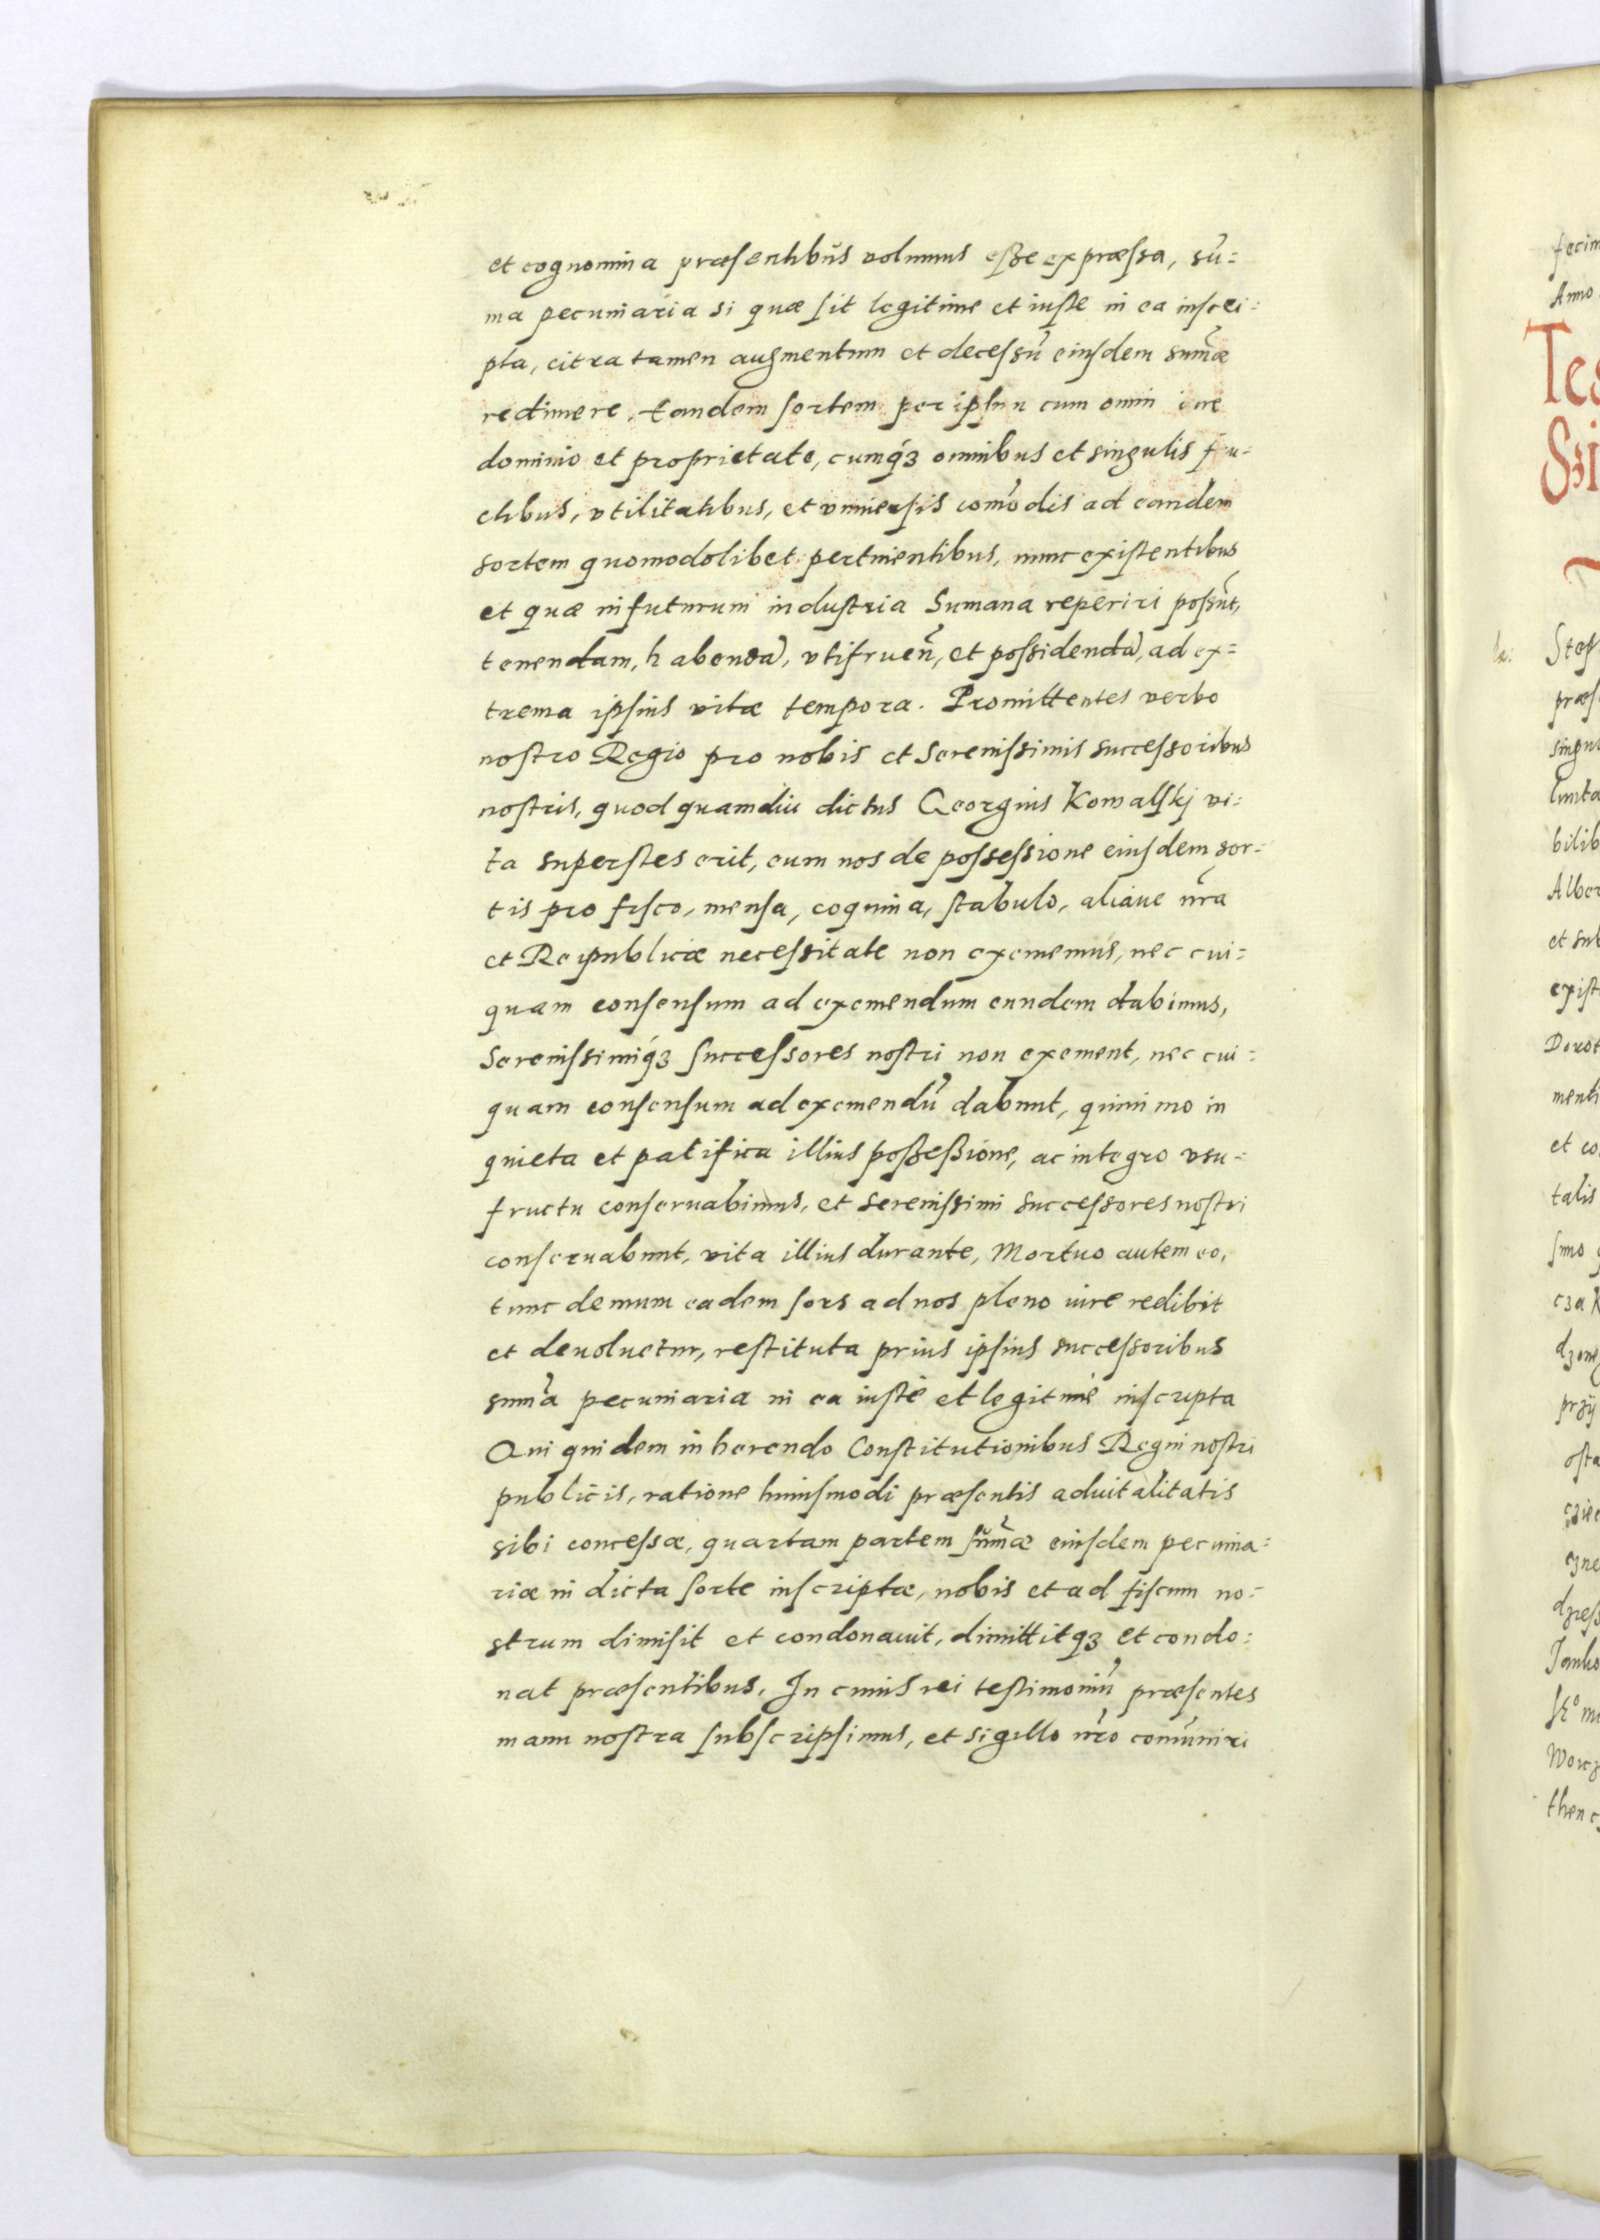 et cognomina præsentibus volumus esse expræssa, sũ=
ma pecuniaria si quæ sit legitime et iuste in ea inscri=
pta, citra tamen augmentum et decessũ eiusdem sum̃æ
redimere, eandem sortem per ipsum cum omni iure
dominio et proprietate, cumq́ꝫ omnibus et singulis fru=
ctibus, vtilitatibus, et vniuersis com̃odis ad eandem
sortem quomodolibet pertinentibus, nunc existentibus
et quæ in futurum industria humana reperiri possũt,
tenendam, habendã, vtifrueñ, et possidendã, ad ex=
trema ipsius vitæ tempora. Promittentes verbo
nostro Regio pro nobis et Serenissimis successoribus
nostris, quod quamdiu dictus Georgius Kowalskj vi=
ta superstes erit, eum nos de possessione eiusdem sor=
tis pro fisco, mensa, coquina, stabulo, aliaue nr̃a
et Reipublicæ necessitate non eximemus, nec cui=
quam consensum ad eximendum eundem dabimus,
Serenissimiq́ꝫ successores nostri non eximent, nec cui=
quam consensum ad eximendũ dabunt, quinimo in
quieta et patifica illius possessione, ac integro vsu=
fructu conseruabimus, et serenissimi successores nostri
conseruabunt, vita illius durante, Mortuo autem eo,
tunc demum eadem sors ad nos pleno iure redibit
et deuoluetur, restituta prius ipsius successoribus
sum̃a pecuniaria in ea iustè et legitimè inscripta
Qui quidem inherendo Constitutionibus Regni nostri
publicis, ratione huiusmodi præsentis aduitalitatis
sibi concessæ, quartam partem sum̃æ eiusdem pecunia=
riæ in dicta sorte inscriptæ, nobis et ad fiscum no=
strum dimisit et condonauit, dimittitqꝫ et condo=
nat præsentibus. In cuius rei testimoniũ præsentes
manu nostra subscripsimus, et sigillo nr̃o com̃uniri